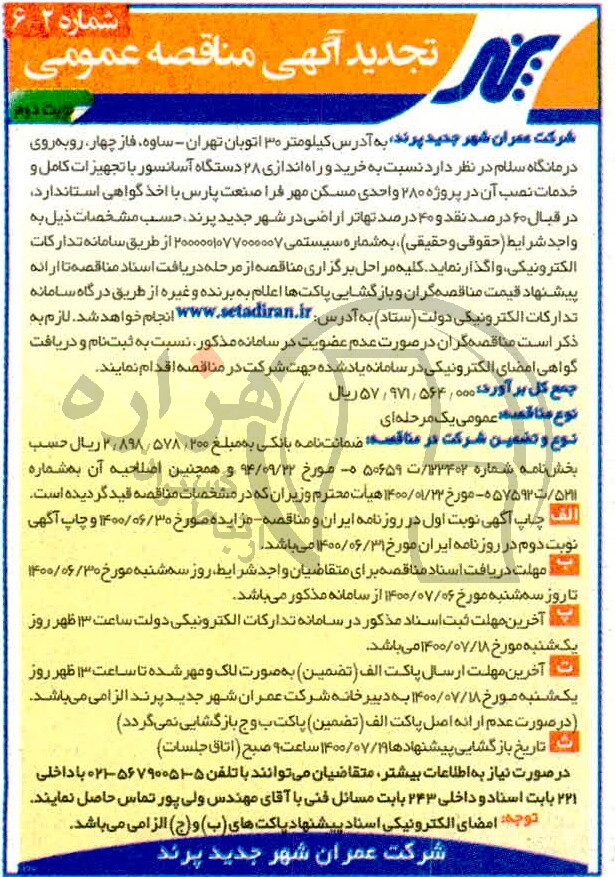 شماره ۲-۶
پرند
تجدید آگهی مناقصه عمومی
نوبت دوم
شرکت عمران شهر جدید پرند، به آدرس کیلومتر ۳۰ اتوبان تهران - ساوه، فاز چهار، روبه‌روی
درمانگاه سلام در نظر دارد نسبت به خرید و راه اندازی ۲۸ دستگاه آسانسور با تجهیزات کامل و
خدمات نصب آن در پروژه ۲۸۰ واحدی مسکن مهر فرا صنعت پارس با اخذ گواهی استاندارد،
در قبال ۶۰ درصد نقد و ۴۰ درصد تهاتر اراضی در شهر جدید پرند، حسب مشخصات ذیل به
واجد شرایط (حقوقی و حقیقی)، به‌شماره سیستمی ۲۰۰۰۰۰۱۰۷۷۰۰۰۰۰۷ از طریق سامانه تدارکات
الکترونیکی، واگذار نماید. کلیه مراحل برگزاری مناقصه از مرحله دریافت اسناد مناقصه تا ارائه
پیشنهاد قیمت مناقصه‌گران و بازگشایی پاکت‌ها اعلام به برنده و غیره از طریق درگاه سامانه
تدارکات الکترونیکی دولت (ستاد) به آدرس: www.setadiran.ir انجام خواهد شد. لازم به
ذکر است مناقصه‌گران در صورت عدم عضویت در سامانه مذکور، نسبت به ثبت‌نام و دریافت
گواهی امضای الکترونیکی در سامانه یادشده جهت شرکت در مناقصه اقدام نمایند.
جمع کل برآورد: ۵۷٫۹۷۱٫۵۶۴٫۰۰۰ ریال
نوع مناقصه: عمومی یک مرحله‌ای
نوع و تضمین شرکت در مناقصه: ضمانت‌نامه بانکی به‌مبلغ ۲٫۸۹۸٫۵۷۸٫۲۰۰ ریال حسب
بخش‌نامه شماره ۱۲۳۴۰۲/ت ۵۰۶۵۹ ه- مورخ ۹۴/۰۹/۲۲ و همچنین اصلاحیه آن به‌شماره
۵۲۱۱/ت ۵۷۵۹۲ ه- مورخ ۱۴۰۰/۰۱/۲۲ هیأت محترم وزیران که در مشخصات مناقصه قید گردیده است.
الف چاپ آگهی نوبت اول در روزنامه ایران و مناقصه-مزایده مورخ ۱۴۰۰/۰۶/۳۰ و چاپ آگهی
نوبت دوم در روزنامه ایران مورخ ۱۴۰۰/۰۶/۳۱ می‌باشد.
ب مهلت دریافت اسناد مناقصه برای متقاضیان واجد شرایط، روز سه‌شنبه مورخ ۱۴۰۰/۰۶/۳۰
تا روز سه‌شنبه مورخ ۱۴۰۰/۰۷/۰۶ از سامانه مذکور می‌باشد.
پ آخرین مهلت ثبت اسناد مذکور در سامانه تدارکات الکترونیکی دولت ساعت ۱۳ ظهر روز
یک‌شنبه مورخ ۱۴۰۰/۰۷/۱۸ می‌باشد.
ت آخرین مهلت ارسال پاکت الف (تضمین) به‌صورت لاک و مهر شده تا ساعت ۱۳ ظهر روز
یک‌شنبه مورخ ۱۴۰۰/۰۷/۱۸ به دبیرخانه شرکت عمران شهر جدید پرند الزامی می‌باشد.
(در صورت عدم ارائه اصل پاکت الف (تضمین) پاکت ب و ج بازگشایی نمی‌گردد)
ث تاریخ بازگشایی پیشنهادها ۱۴۰۰/۰۷/۱۹ ساعت ۹ صبح (اتاق جلسات)
در صورت نیاز به اطلاعات بیشتر، متقاضیان می‌توانند با تلفن ۵-۵۶۷۹۰۰۵۱-۰۲۱ با داخلی
۲۲۱ بابت اسناد و داخلی ۲۴۳ بابت مسائل فنی با آقای مهندس ولی پور تماس حاصل نمایند.
توجه: امضای الکترونیکی اسناد پیشنهاد پاکت‌های (ب) و (ج) الزامی می‌باشد.
شرکت عمران شهر جدید پرند
هزاره